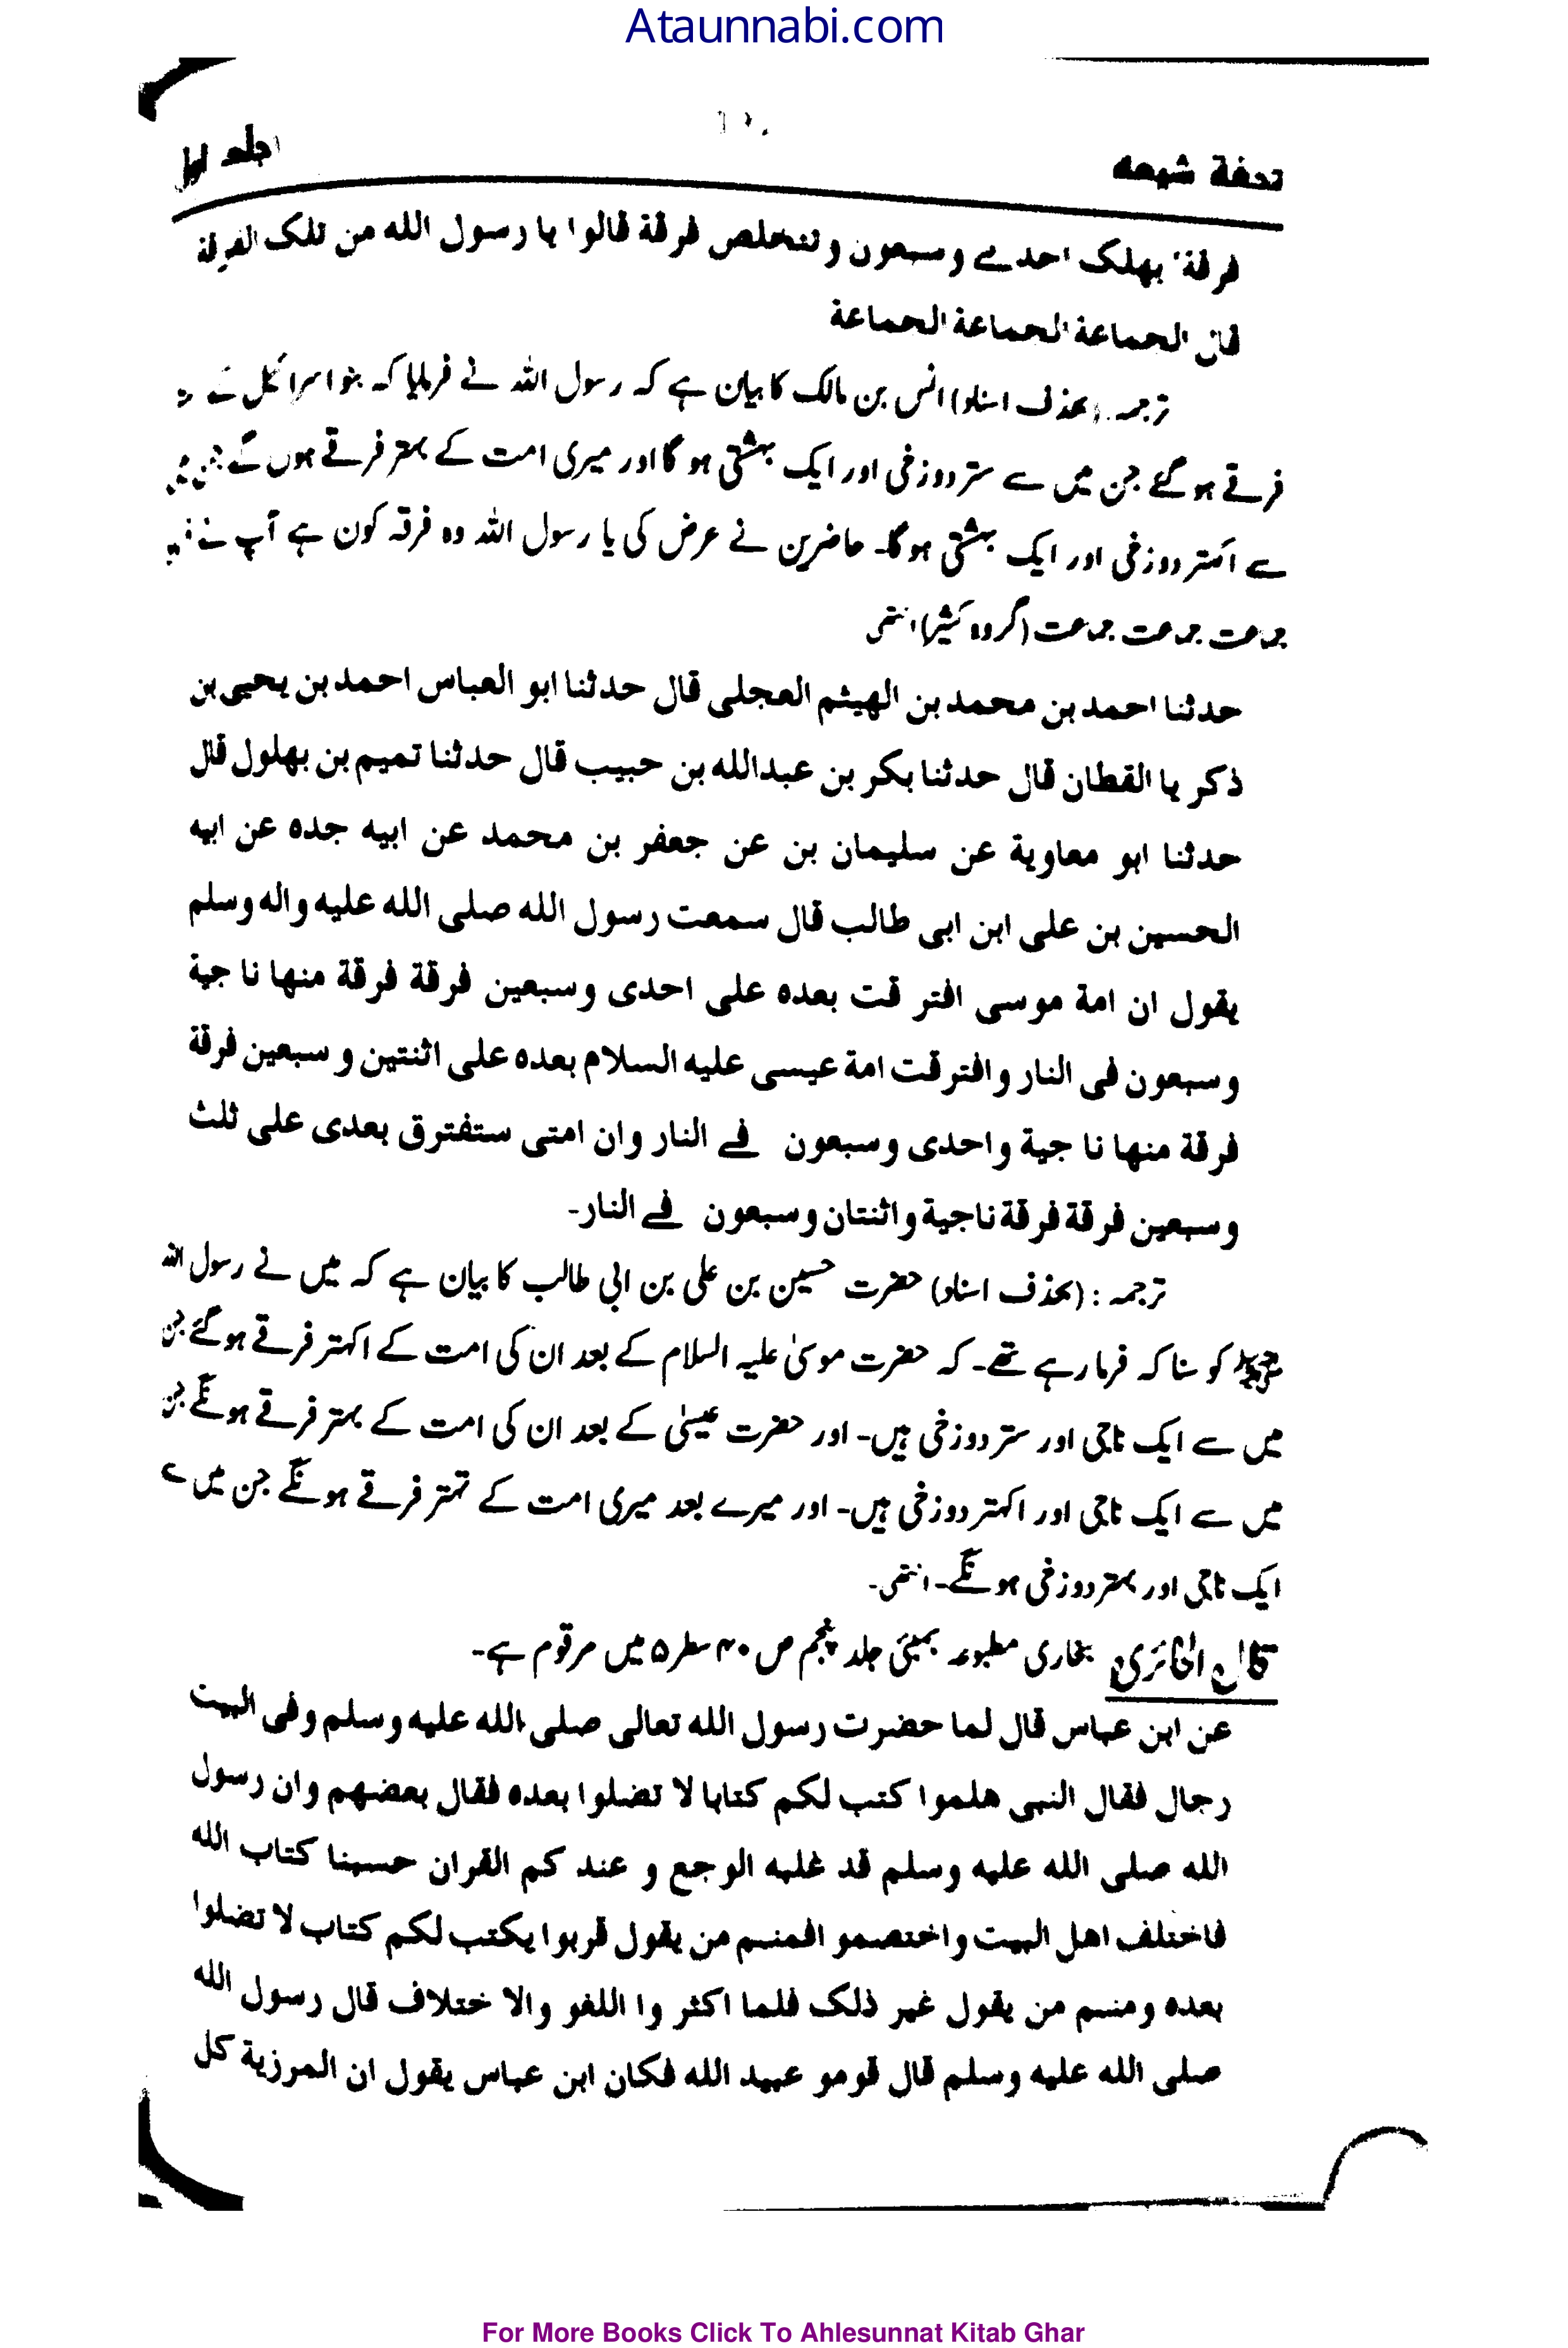 Ataunnabi.com
تحفة شیعه
جلد اول
فرقة یهلک احدے وسبعون وتتخلص فرقة قالوا یا رسول الله من تلک الفرقة
قال الجماعة الجماعة الجماعة
ترجمہ (بحذف اسناد) انس بن مالک کا بیان ہے کہ رسول اللہ نے فرمایا کہ بنو اسرائیل کے
فرقے ہو گئے جن میں سے ستر دوزخی اور ایک بہشتی ہو گا اور میری امت کے بہتر فرقے ہوں گے جن میں
سے اکہتر دوزخی اور ایک بہشتی ہوگا۔ حاضرین نے عرض کی یا رسول اللہ وہ فرقہ کون ہے آپ نے
جماعت جماعت جماعت (گروہ کثیر) انتہی
حدثنا احمد بن محمد بن الهیثم العجلی قال حدثنا ابو العباس احمد بن یحیی بن
ذکر یا القطان قال حدثنا بکر بن عبدالله بن حبیب قال حدثنا تمیم بن بهلول قال
حدثنا ابو معاویة عن سلیمان بن عن جعفر بن محمد عن ابیه جده عن ابیه
الحسین بن علی ابن ابی طالب قال سمعت رسول الله صلی الله علیه واله وسلم
یقول ان امة موسی افتر قت بعده علی احدی وسبعین فرقة فرقة منها نا جیة
وسبعون فی النار وافترقت امة عیسی علیه السلام بعده علی اثنتین و سبعین فرقة
فرقة منها نا جیة واحدی وسبعون فے النار وان امتی ستفترق بعدی علی ثلث
وسبعین فرقة فرقة ناجیة واثنتان وسبعون فے النار۔
ترجمہ : (بحذف اسناد) حضرت حسین بن علی بن ابی طالب کا بیان ہے کہ میں نے رسول اللہ
ﷺ کو سنا کہ فرما رہے تھے۔ کہ حضرت موسیٰ علیہ السلام کے بعد ان کی امت کے اکہتر فرقے ہوگئے جن
میں سے ایک ناجی اور ستر دوزخی ہیں۔ اور حضرت عیسیٰ کے بعد ان کی امت کے بہتر فرقے ہونگے جن
میں سے ایک ناجی اور اکہتر دوزخی ہیں۔ اور میرے بعد میری امت کے تہتر فرقے ہونگے جن میں سے
ایک ناجی اور بہتر دوزخی ہونگے۔ انتہی۔
قال الحائری بخاری مطبوعہ بمبئی جلد پنجم ص ۴۰ سطر ۵ میں مرقوم ہے۔
عن ابن عباس قال لما حضرت رسول الله تعالی صلی الله علیه وسلم وفی البیت
رجال فقال النبی هلموا کتب لکم کتابا لا تضلوا بعده فقال بعضهم وان رسول
الله صلی الله علیه وسلم قد غلبه الوجع و عند کم القران حسبنا کتاب الله
فاختلف اهل البیت واختصمو افمنسم من یقول قربوا یکتب لکم کتاب لا تضلوا
بعده ومنسم من یقول غیر ذلک فلما اکثر وا اللغو والا ختلاف قال رسول الله
صلی الله علیه وسلم قال قومو عبید الله فکان ابن عباس یقول ان المرزیة کل
For More Books Click To Ahlesunnat Kitab Ghar